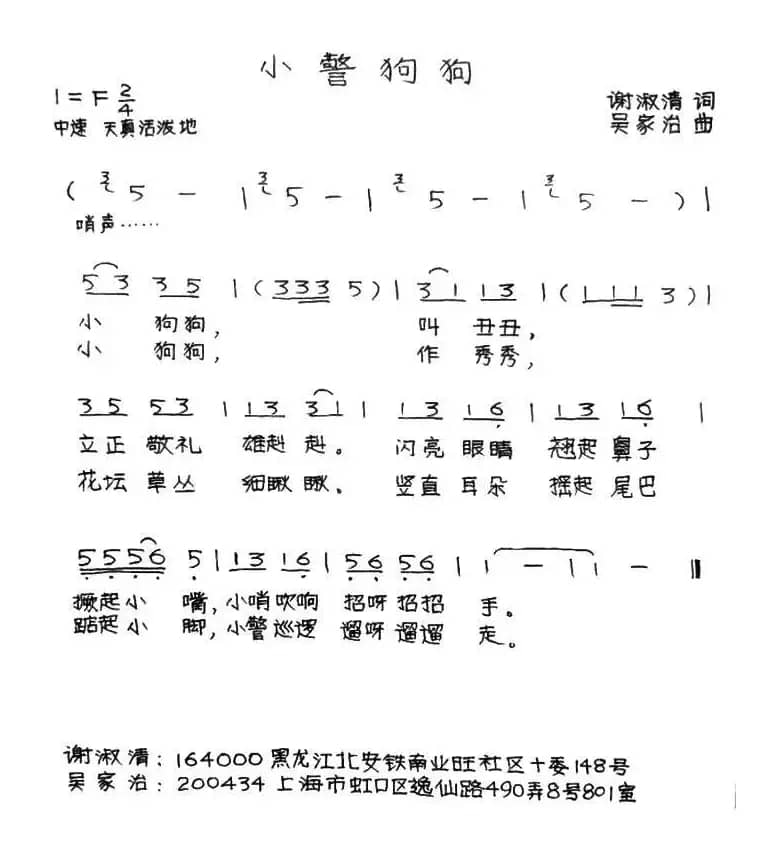 小警狗狗
1=F 2/4
谢淑清 词
中速 天真活泼地
吴家治 曲
( 3 5 - | 3 5 - | 3 5 - | 3 5 - ) |
哨声……
5 3 3 5 | ( 3 3 3 5 ) | 3 1 1 3 | ( 1 1 1 3 ) |
小 狗狗, 叫 丑丑,
小 狗狗, 作 秀秀,
3 5 5 3 | 1 1 3 3 1 | 1 3 1 6 | 1 3 1 6 |
立正 敬礼 雄赳 赳。 闪亮 眼睛 翘起 鼻子
花坛 草丛 细瞅 瞅、 竖直 耳朵 摇起 尾巴
5 5 5 6 5 | 1 3 1 6 | 5 6 5 6 | 1 - | 1 - ‖
撅起小 嘴, 小哨吹响 招呀招招 手。
踮起小 脚, 小警巡逻 遛呀遛遛 走。
谢淑清: 164000 黑龙江北安铁南业旺社区十委148号
吴家治: 200434 上海市虹口区逸仙路490弄8号801室